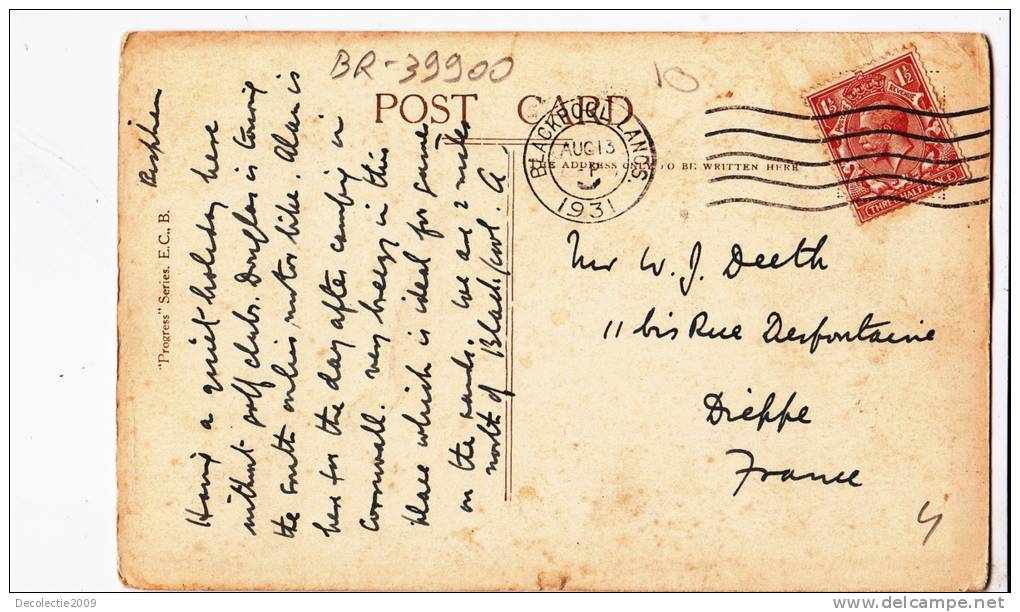 BR-39900
10
POST CARD
THE ADDRESS ONLY TO BE WRITTEN HERE
BLACKPOOL LANCS.
AUG 13
P
1931
1½ 1½
REVENUE
THREE HALF PENCE
"Progress" Series. E.C., B.
Bispham
Having a quiet holiday here
without golf clubs. Douglas is touring
the south on his motor bike. Alan is
here for the day after camping in
Cornwall. Very breezy in this
place which is ideal for games
on the sands. We are 2 miles
north of Blackpool. A
Mr W. J. Deeth
11 bis Rue Desfontaine
Dieppe
France
4
Decolectie2009
delcampe.net